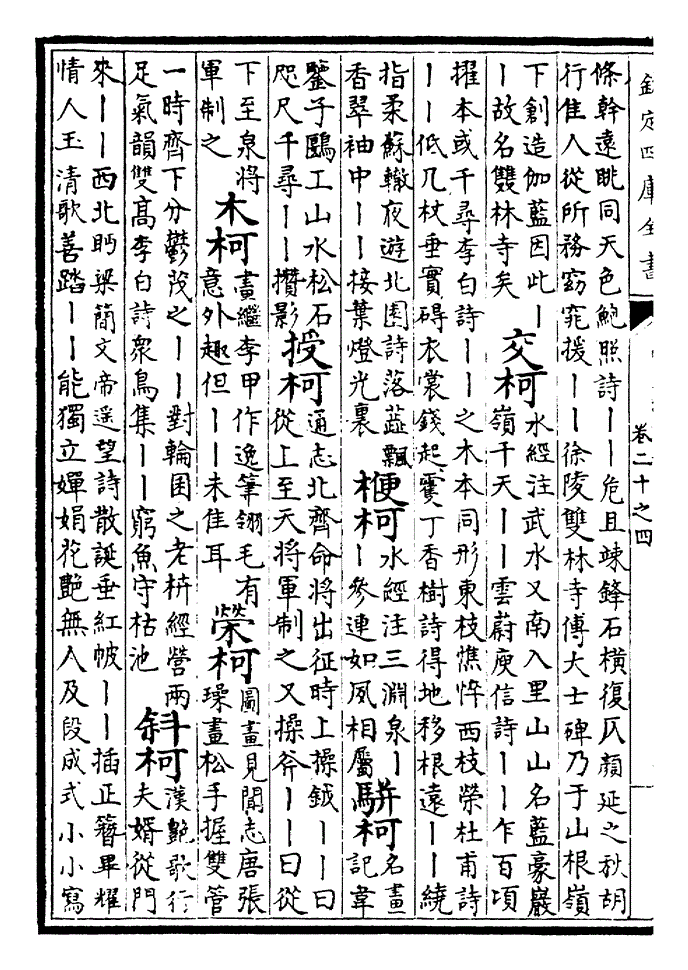 欽定四庫全書
卷二十之四
條幹遠眺同天色鮑照詩丨丨危且竦鋒石橫復仄顏延之秋胡
行隹人從所務窈窕援丨丨徐陵雙林寺傅大士碑乃于山根嶺
下創造伽藍因此丨
丨故名雙林寺矣
交柯
水經注武水又南入里山山名藍豪巖
嶺干天丨丨雲蔚庾信詩丨丨乍百頃
擢本或千尋李白詩丨丨之木本同形東枝憔悴西枝榮杜甫詩
丨丨低几杖垂實碍衣裳錢起賦丁香樹詩得地移根遠丨丨繞
指柔蘇轍夜遊北園詩落蘂飄
香翠袖中丨丨接葉燈光裏
梗柯
水經注三淵泉丨
丨參連如夙相屬
駢柯
名畫
記韋
鑒子鷗工山水松石
咫尺千尋丨丨攢影
授柯
通志北齊命將出征時上操鉞丨丨曰
從上至天將軍制之又操斧丨丨曰從
下至泉將
軍制之
木柯
畫繼李甲作逸筆翎毛有
意外趣但丨丨未隹耳
榮柯
圖畫見聞志唐張
璪畫松手握雙管
一時齊下分鬱茂之丨丨對輪囷之老枿經營兩
足氣韻雙高李白詩衆鳥集丨丨窮魚守枯池
斜柯
漢艷歌行
夫婿從門
來丨丨西北眄梁簡文帝遥望詩散誕垂紅帔丨丨插正簪畢耀
情人玉清歌善踏丨丨能獨立嬋娟花艷無人及段成式小小寫